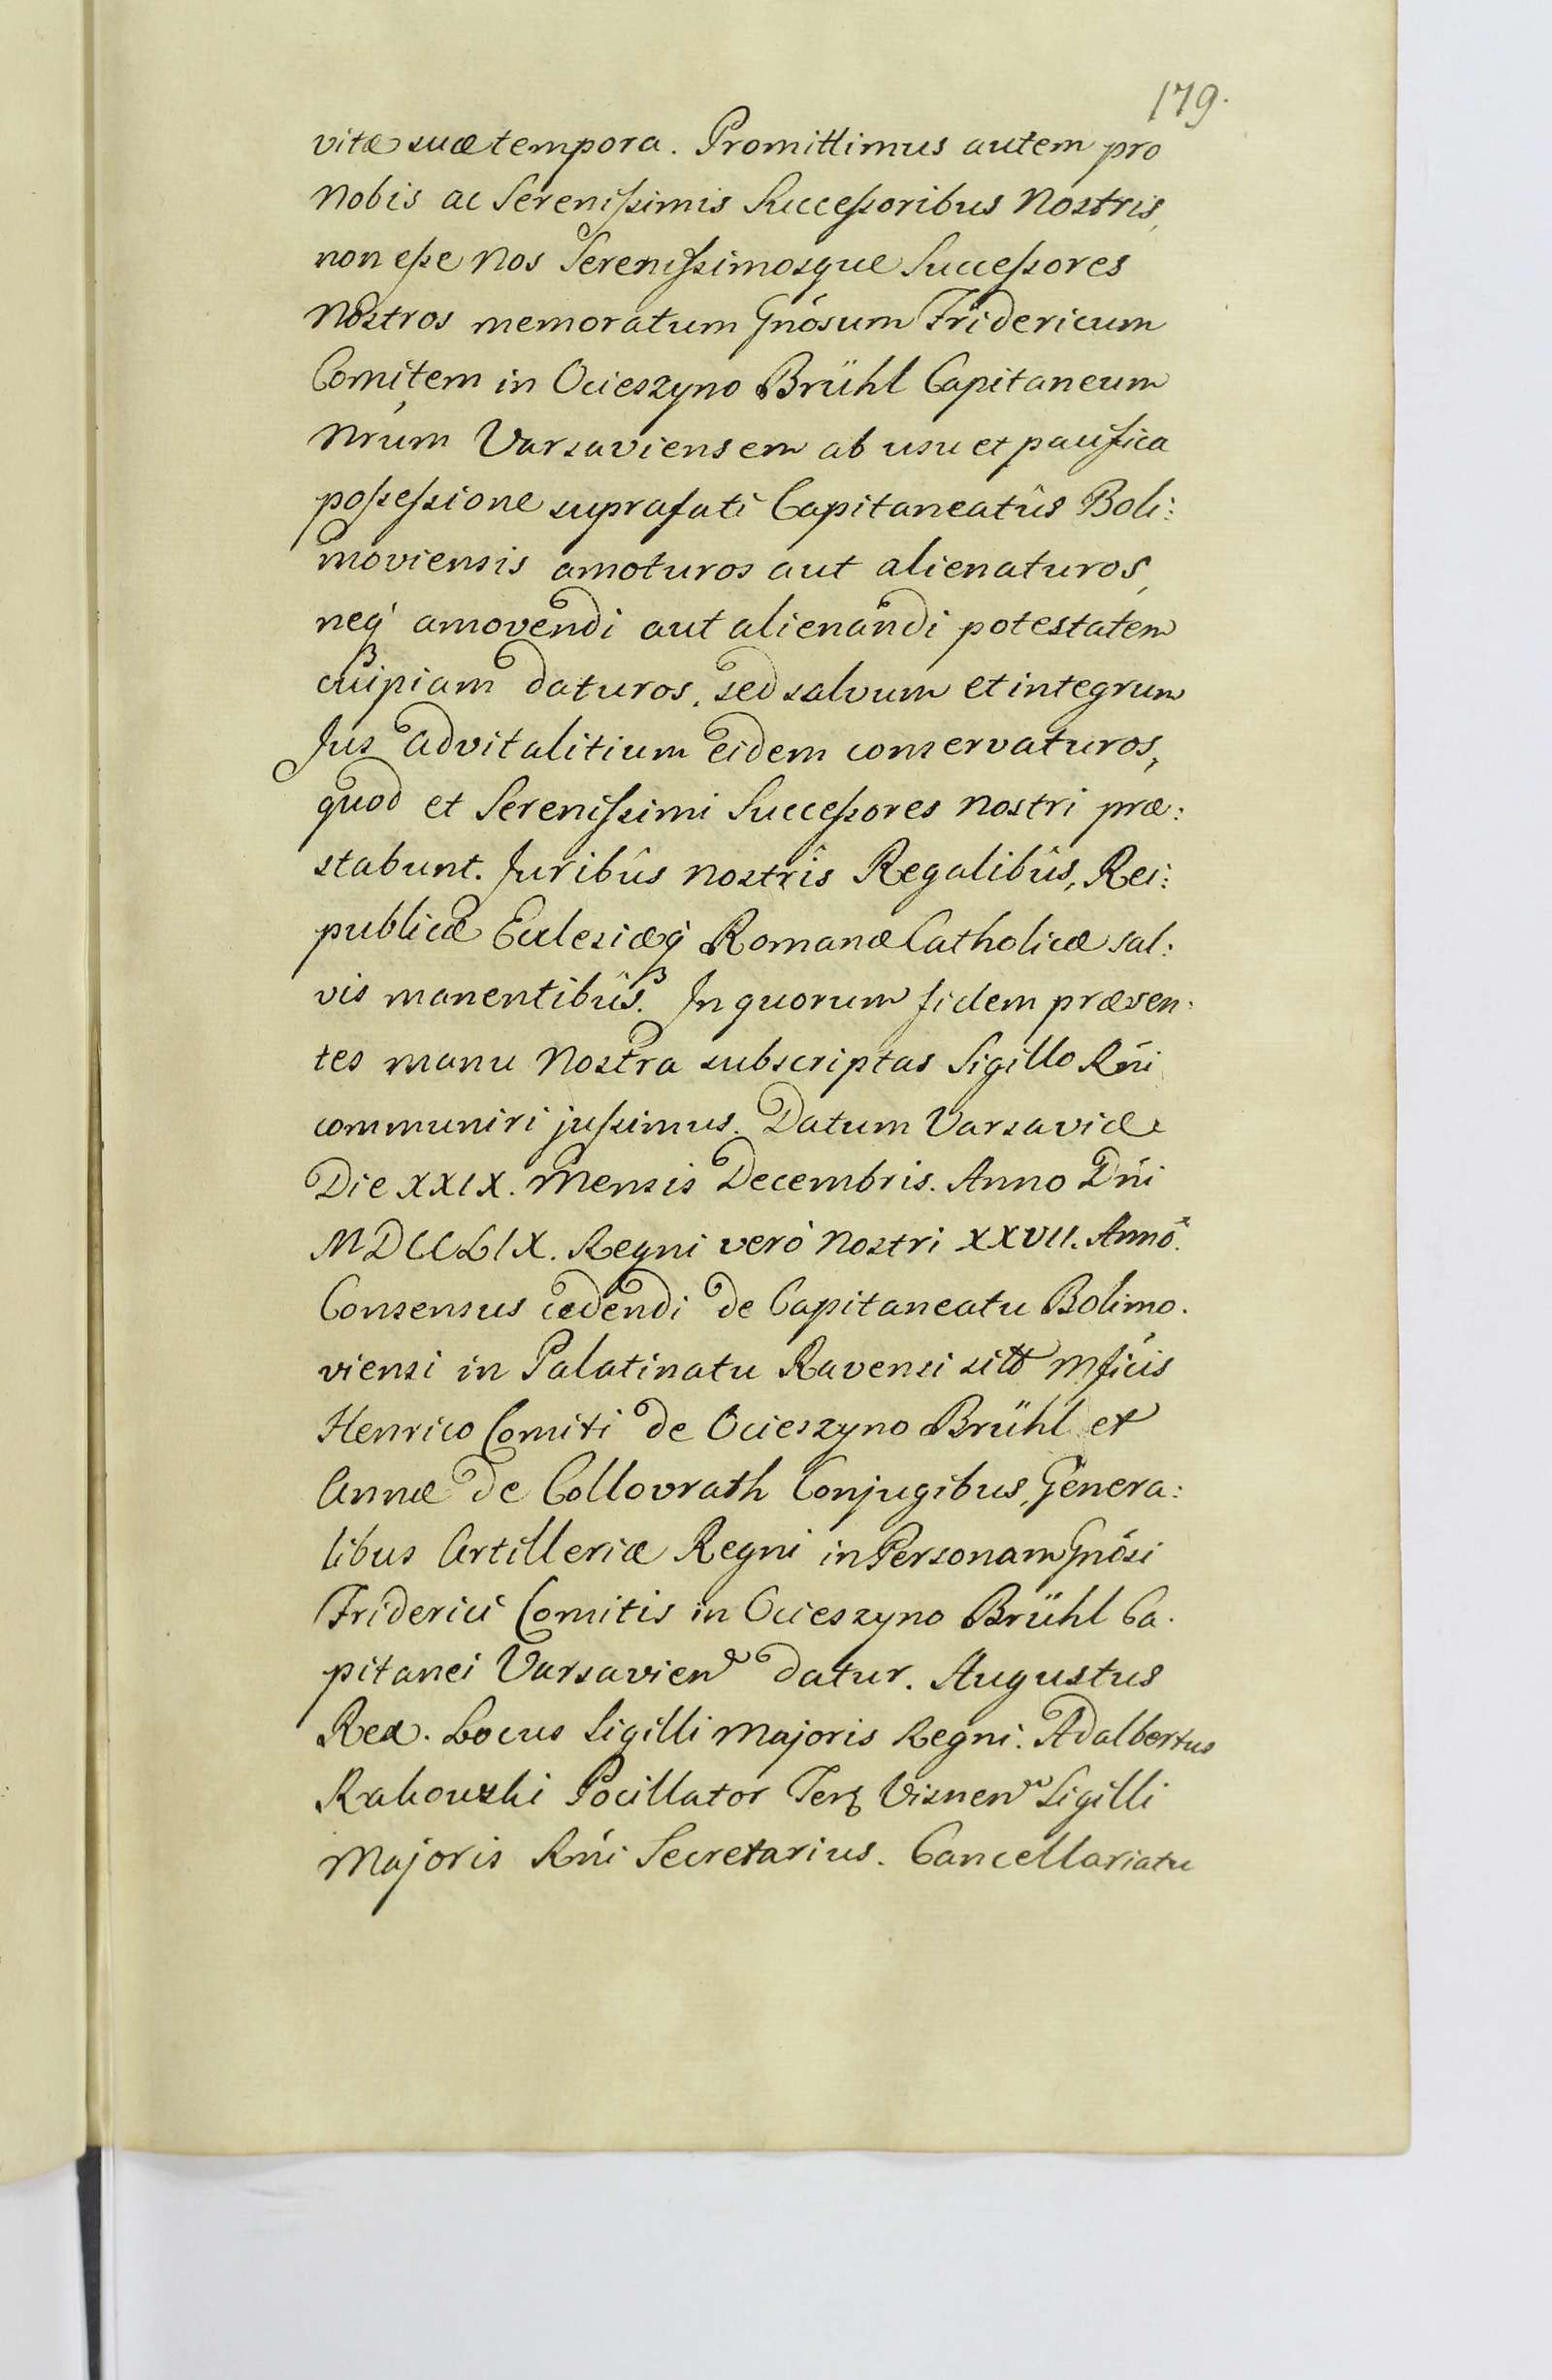 179.
vitæ suæ tempora. Promittimus autem pro
Nobis ac Serenissimis Successoribus Nostris,
non esse Nos Serenissimosque Successores
Nostros memoratum Gnósum Fridericum
Comitem in Ocieszyno Brühl Capitaneum
Nrúm Varsaviensem ab usu et pacifica
possessione suprafati Capitaneatûs Boli:
moviensis amoturos aut alienaturos,
neq́ amovendi aut alienandi potestatem
cuipiam daturos, sed salvum et integrum
Jus advitalitium eidem conservaturos,
quod et Serenissimi Successores nostri præ:
stabunt. Juribûs nostrîs Regalibûs, Rei:
publicæ Eclesiæq́ Romanæ Catholicæ sal:
vis manentibûs. In quorum fidem præsen:
tes manu Nostra subscriptas Sigillo Rńi
communiri jussimus. Datum Varsaviæ
Die XXIX. Mensis Decembris. Anno Dńi
MDCCLIX. Regni verò Nostri XXVII. Annô.
Consensus cedendi de Capitaneatu Bolimo.
viensi in Palatinatu Ravensi sito Mficis
Henrico Comiti de Ocieszyno Brühl et
Annæ de Collovrath Conjugibus, Genera:
libus Artilleriæ Regni in Personam Gnósi
Friderici Comitis in Ocieszyno Brühl Ca.
pitanei Varsavien datur. Augustus
Rex. Locus Sigilli Majoris Regni. Adalbertus
Rakowski Pocillator Terŗ Visnen Sigilli
Majoris Rńi Secretarius. Cancellariatu